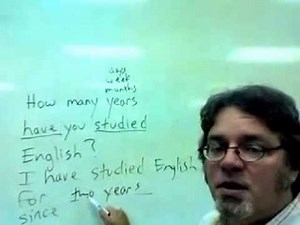 days
week
months
How many years
have you studied
English?
I have studied English
For two years
since